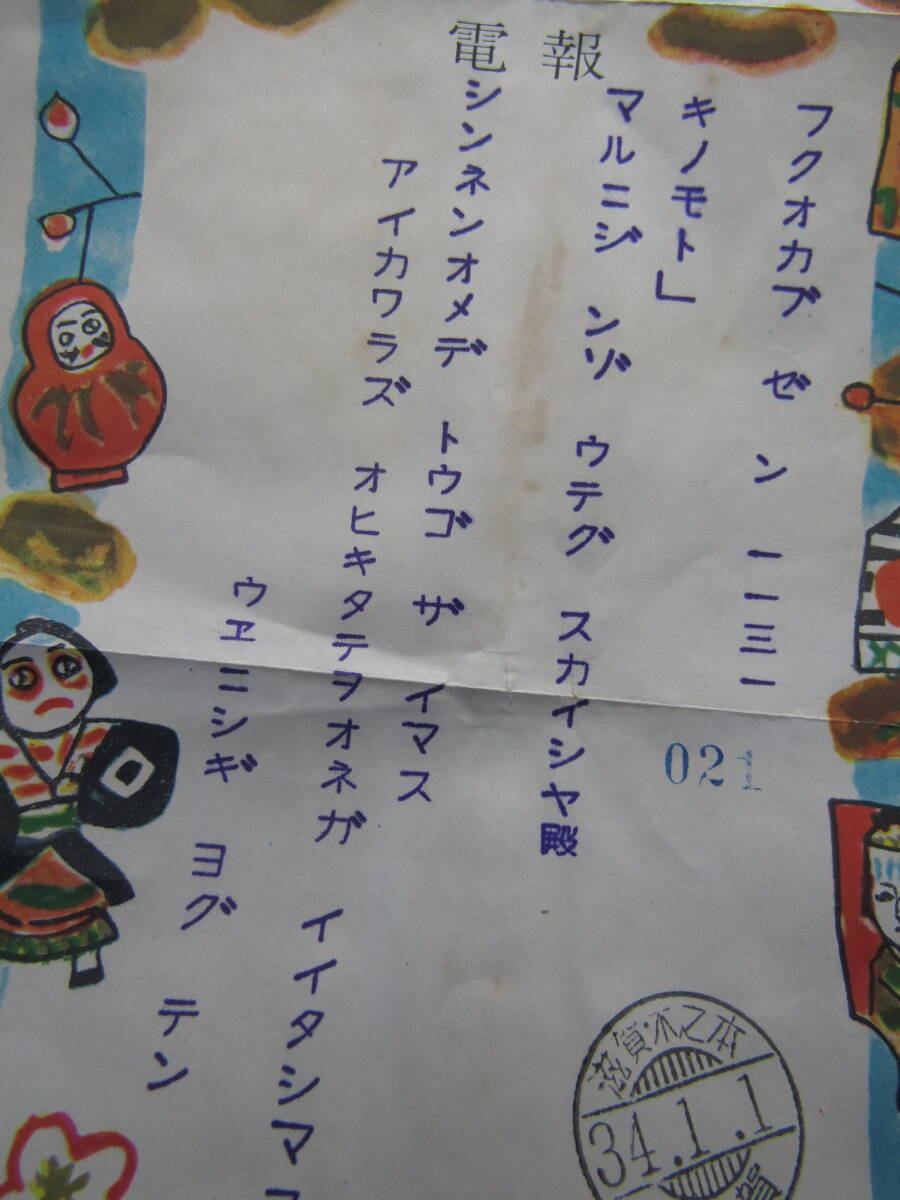 電報
フクオカブ ゼン 一一三一
キノモト」
マルニジ ンゾ ウテグ スカイシヤ殿
シンネンオメデ トウゴ ザ イマス
アイカワラズ オヒキタテヲオネガ イイタシマ
ウエニシギ ヨグ テン
021
滋賀・木之本
34.1.1